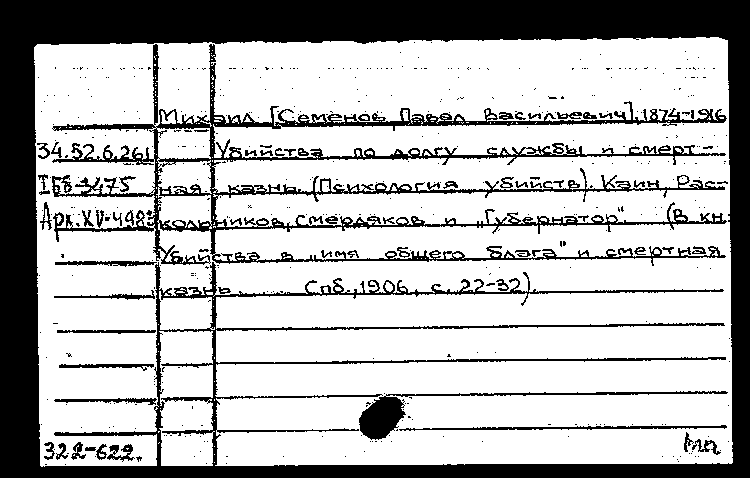 Михаил [Семенов, Павел Васильевич], 1874-1916
34.52.6.261 Убийства по долгу службы и смерт-
IБб-3475 ная казнь. (Психология убийств). Каин, Рас-
Арх.XV-4983 кольников, Смердяков и „Губернатор". (В кн:
Убийства в „имя общего блага" и смертная
казнь. Спб., 1906, с. 22-32).
322-622.